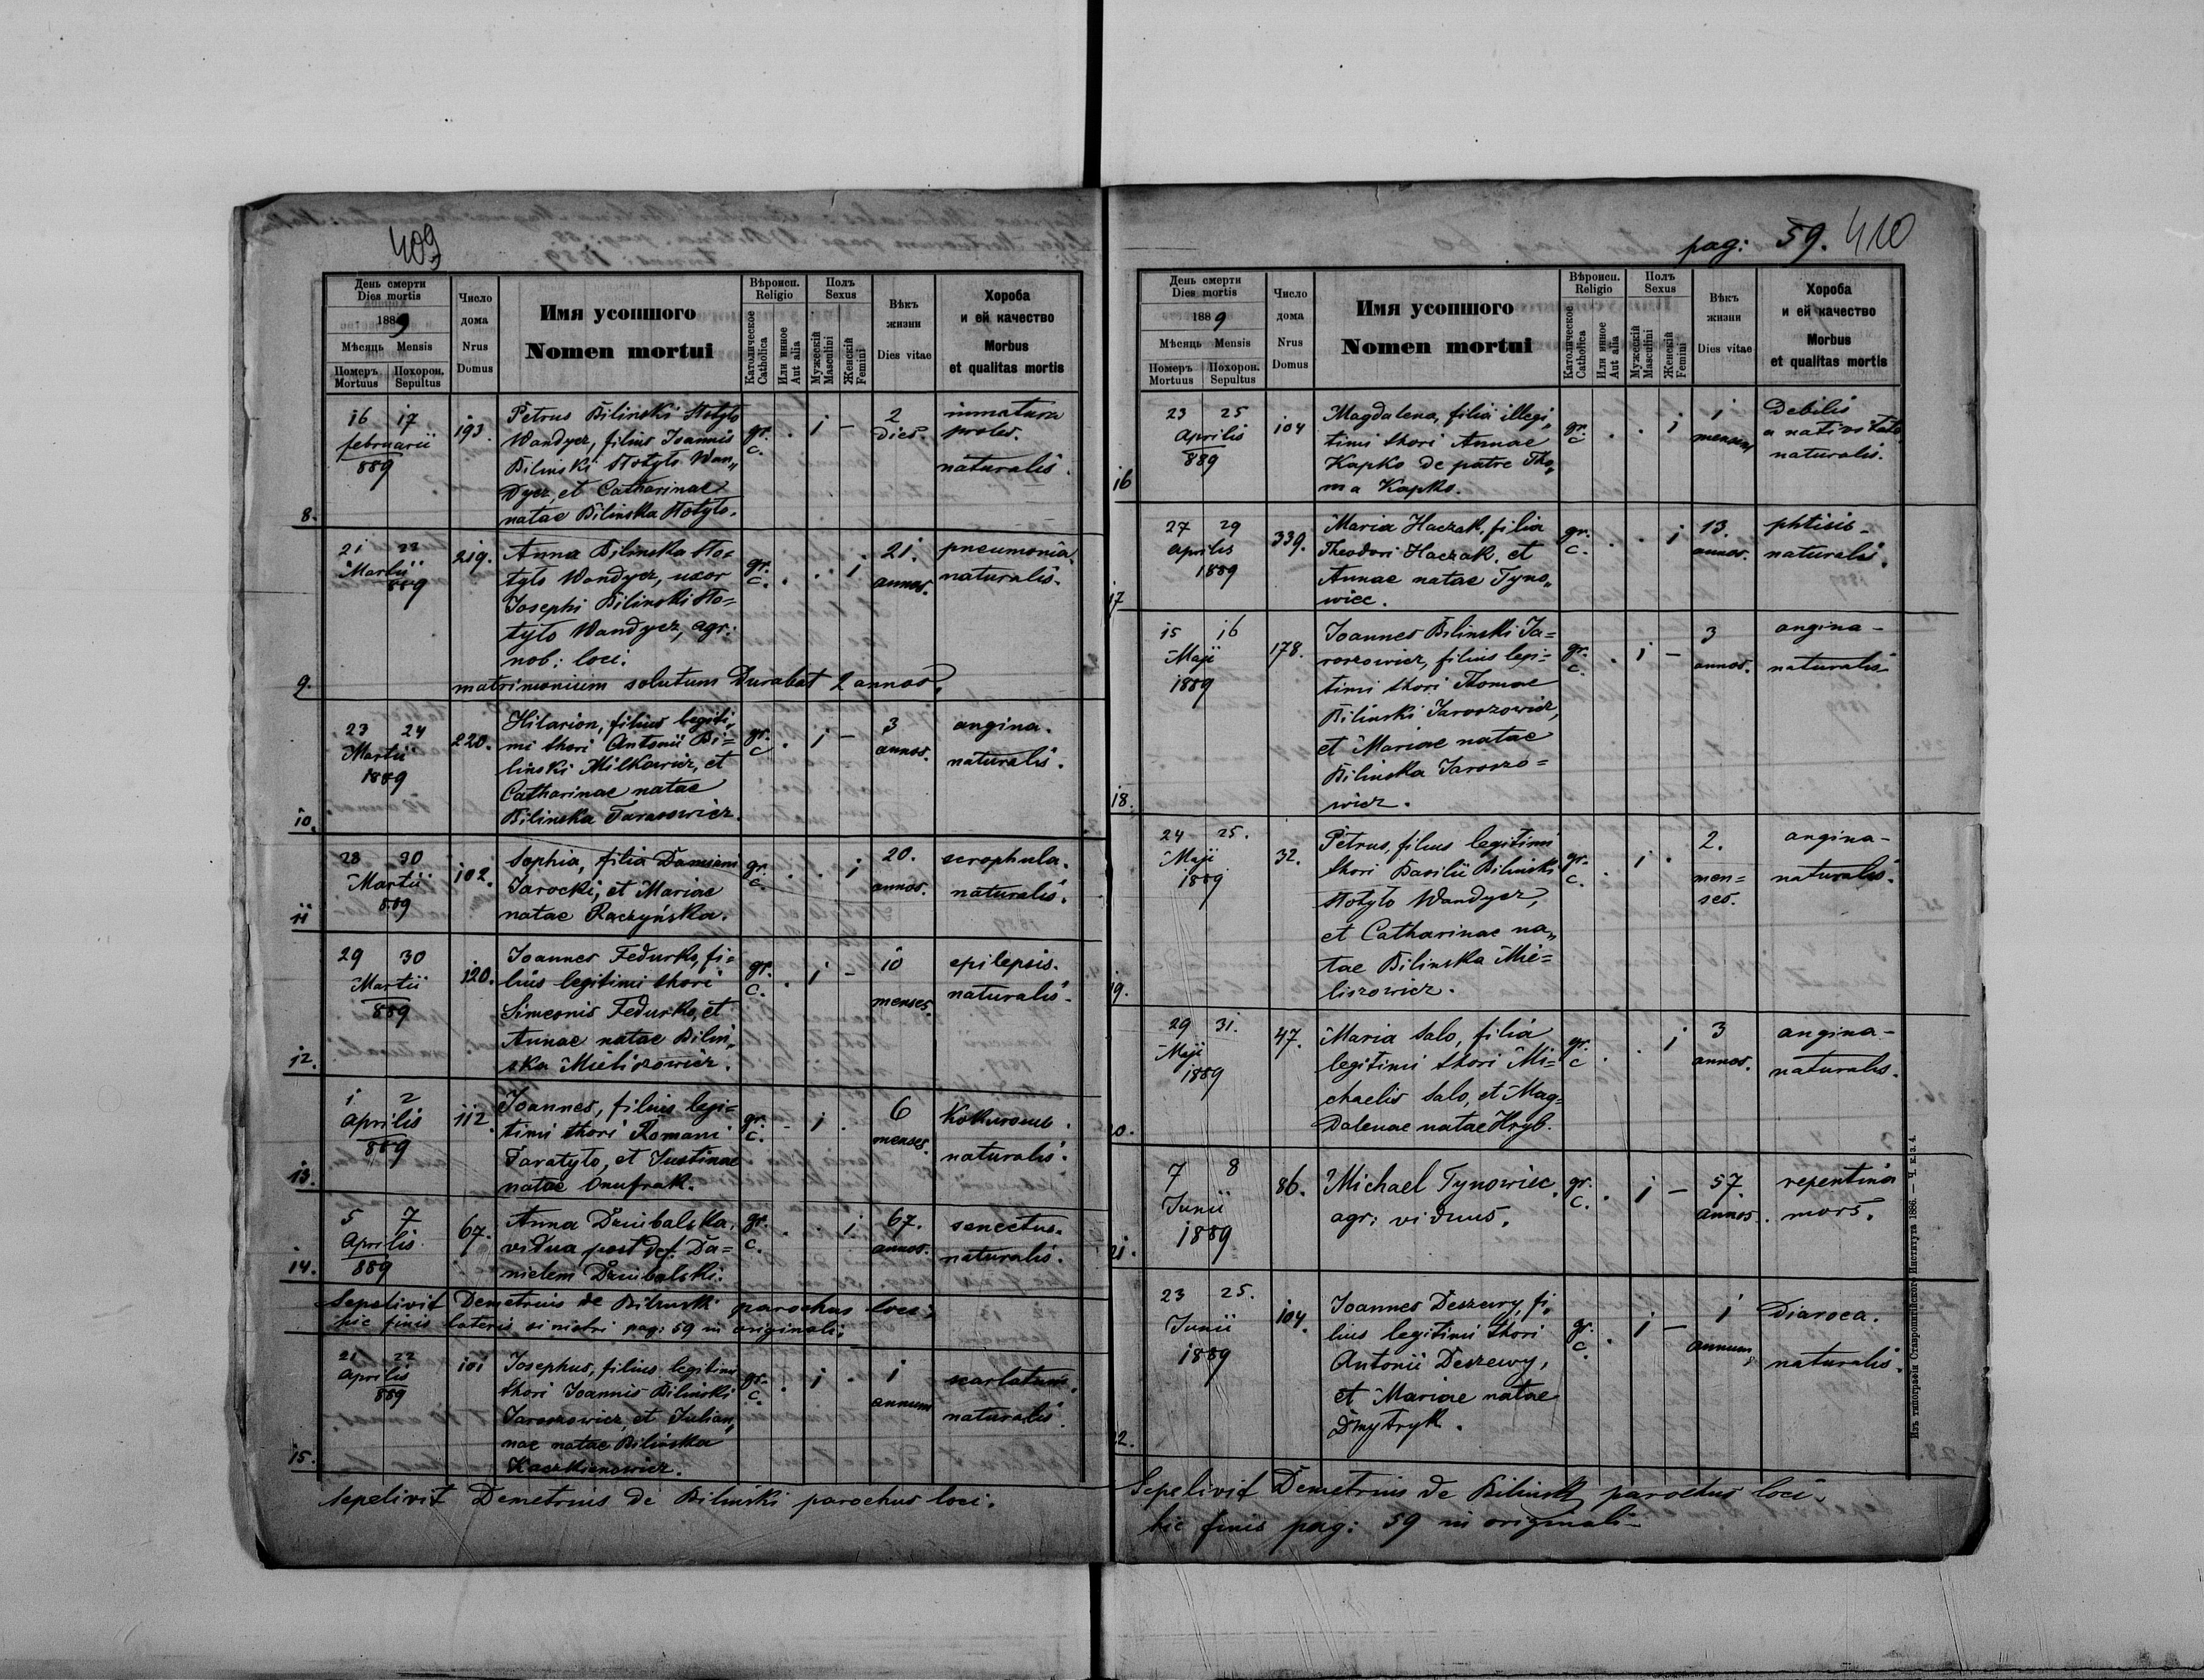 409
День смерти
Dies mortis
1889
Мѣсяць Mensis
Померъ Похорон.
Mortuus Sepultus
Число
дома
Nrus
Domus
Имя усопшого
Nomen mortui
Вѣроисп.
Religio
Католическое
Catholica
Или инное
Aut alia
Полъ
Sexus
Мужескій
Masculini
Женскій
Femini
Вѣкъ
жизни
Dies vitae
Хороба
и ей качество
Morbus
et qualitas mortis
8.
16 17
februarii
889
193.
Petrus Bilinski Kotyto
Wandycz, filius Joannis
Bilinski Kotyto Wan„
dycz, et Catharinae
natae Bilinska Kotyto.
gr.
c.
. i –
2
dies.
immatura
proles.
naturalis.
9.
21 22
Martii
889
219.
Anna Bilinska Ko=
tyto Wandycz, uxor
Josephi Bilinski Ko=
tyto Wandycz, agr:
nob: loci.
matrimonium solutum durabat 2 annos.
gr.
c.
. . i
21.
annos.
pneumonia
naturalis.
10.
23 24
Martii
1889
220.
Hilarion, filius legiti„
mi thori Antonii Bi=
linski Milkowicz, et
Catharinae natae
Bilinska Tarasowicz.
gr.
c
. i –
3
annos.
angina.
naturalis.
11
28 30
Martii
889
102.
Sophia, filia Damiani
Jarocki, et Mariae
natae Raczyńska.
gr.
c.
. . i
20.
annos.
scrophula.
naturalis.
12.
29 30
Martii
889
120.
Joannes Fedurko, fi=
lius legitimi thori
Simeonis Fedurko, et
Annae natae Bilin„
ska Mieliszowicz.
gr.
c.
. i –
10
menses.
epilepsis.
naturalis.
13.
1 2
Aprilis
889
112.
Joannes, filius legi=
timi thori Romani
Taratyto, et Justinae
natae Onufrak.
gr.
c.
– i .
6
menses.
naturalis.
14.
5 7
Aprilis
889
67.
Anna Dzubalska,
vidua post def. Da=
nielem Dzubalski.
gr.
c.
. . i
67.
annos.
senectus.
naturalis.
Sepelivit Demetrius de Bilinski parochus loci.
hic finis lateris sinistri pag: 59 in originali.
15.
21 22
Aprilis
889
101
Josephus, filius legitimi
thori Joannis Bilinski
Jaroszowicz, et Julian„
nae natae Bilinska
Kaczkienowicz.
gr.
c.
. i .
1
annum
scarlatum.
naturalis.
Sepelivit Demetrius de Bilinski parochus loci.
pag: 59. 410
День смерти
Dies mortis
1889
Мѣсяць Mensis
Померъ Похорон.
Mortuus Sepultus
Число
дома
Nrus
Domus
Имя усопшого
Nomen mortui
Вѣроисп.
Religio
Католическое
Catholica
Или инное
Aut alia
Полъ
Sexus
Мужескій
Masculini
Женскій
Femini
Вѣкъ
жизни
Dies vitae
Хороба
и ей качество
Morbus
et qualitas mortis
16
23 25
Aprilis
889
104
Magdalena, filia illegi„
timi thori Annae
Kapko de patre Tho„
ma Kapko.
gr.
c.
. . i
1
mensem
Debilis
a nativitate
naturalis.
17
27 29
Aprilis
1889
339.
Maria Haczak, filia
Theodori Haczak, et
Annae natae Tyno„
wiec.
gr.
c.
. . i
13.
annos.
phtisis –
naturalis.
18.
15 16
Maji
1889
178.
Joannes Bilinski Ja=
roszowicz, filius legi=
timi thori Thomae
Bilinski Jaroszowicz,
et Mariae natae
Bilinska Jaroszo=
wicz.
gr.
c.
. i –
3
annos.
angina –
naturalis.
19.
24 25.
Maji
1889
32.
Petrus, filius legitimi
thori Basilii Bilinski
Kotyto Wandycz,
et Catharinae na„
tae Bilinska Mie=
liszowicz.
gr.
c.
. i .
2.
men=
ses.
angina –
naturalis.
20.
29 31.
Maji
1889
47.
Maria Salo, filia
legitimi thori Mi=
chaelis Salo, et Mag=
dalenae natae Hryb.
gr.
c
. . i
3
annos.
angina –
naturalis.
21.
7 8
Junii
1889
86.
Michael Tynowiec
agr: viduus.
gr.
c.
. i –
57.
annos.
repentina
mors.
22.
23 25.
Junii
1889
104.
Joannes Deszewy, fi„
lius legitimi thori
Antonii Deszewy,
et Mariae natae
Dmytryk.
gr.
c.
. i –
1
annum
Diaroea.
naturalis.
Sepelivit Demetrius de Bilinski parochus loci.
hic finis pag: 59 in originali –
Изъ типографіи Ставропигійского Института 1886. — Ч. к. з. 4.